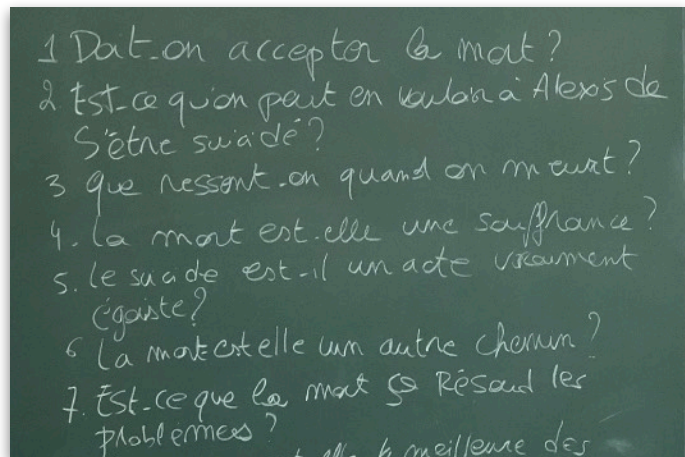 1 Doit-on accepter la mort ?
2 Est-ce qu'on peut en vouloir à Alexis de
s'être suicidé ?
3 que ressent-on quand on meurt ?
4. La mort est-elle une souffrance ?
5. le suicide est-il un acte vraiment
égoiste ?
6 La mort est elle un autre chemin ?
7. Est-ce que la mort ça Résoud les
problèmes ?
elle la meilleure des